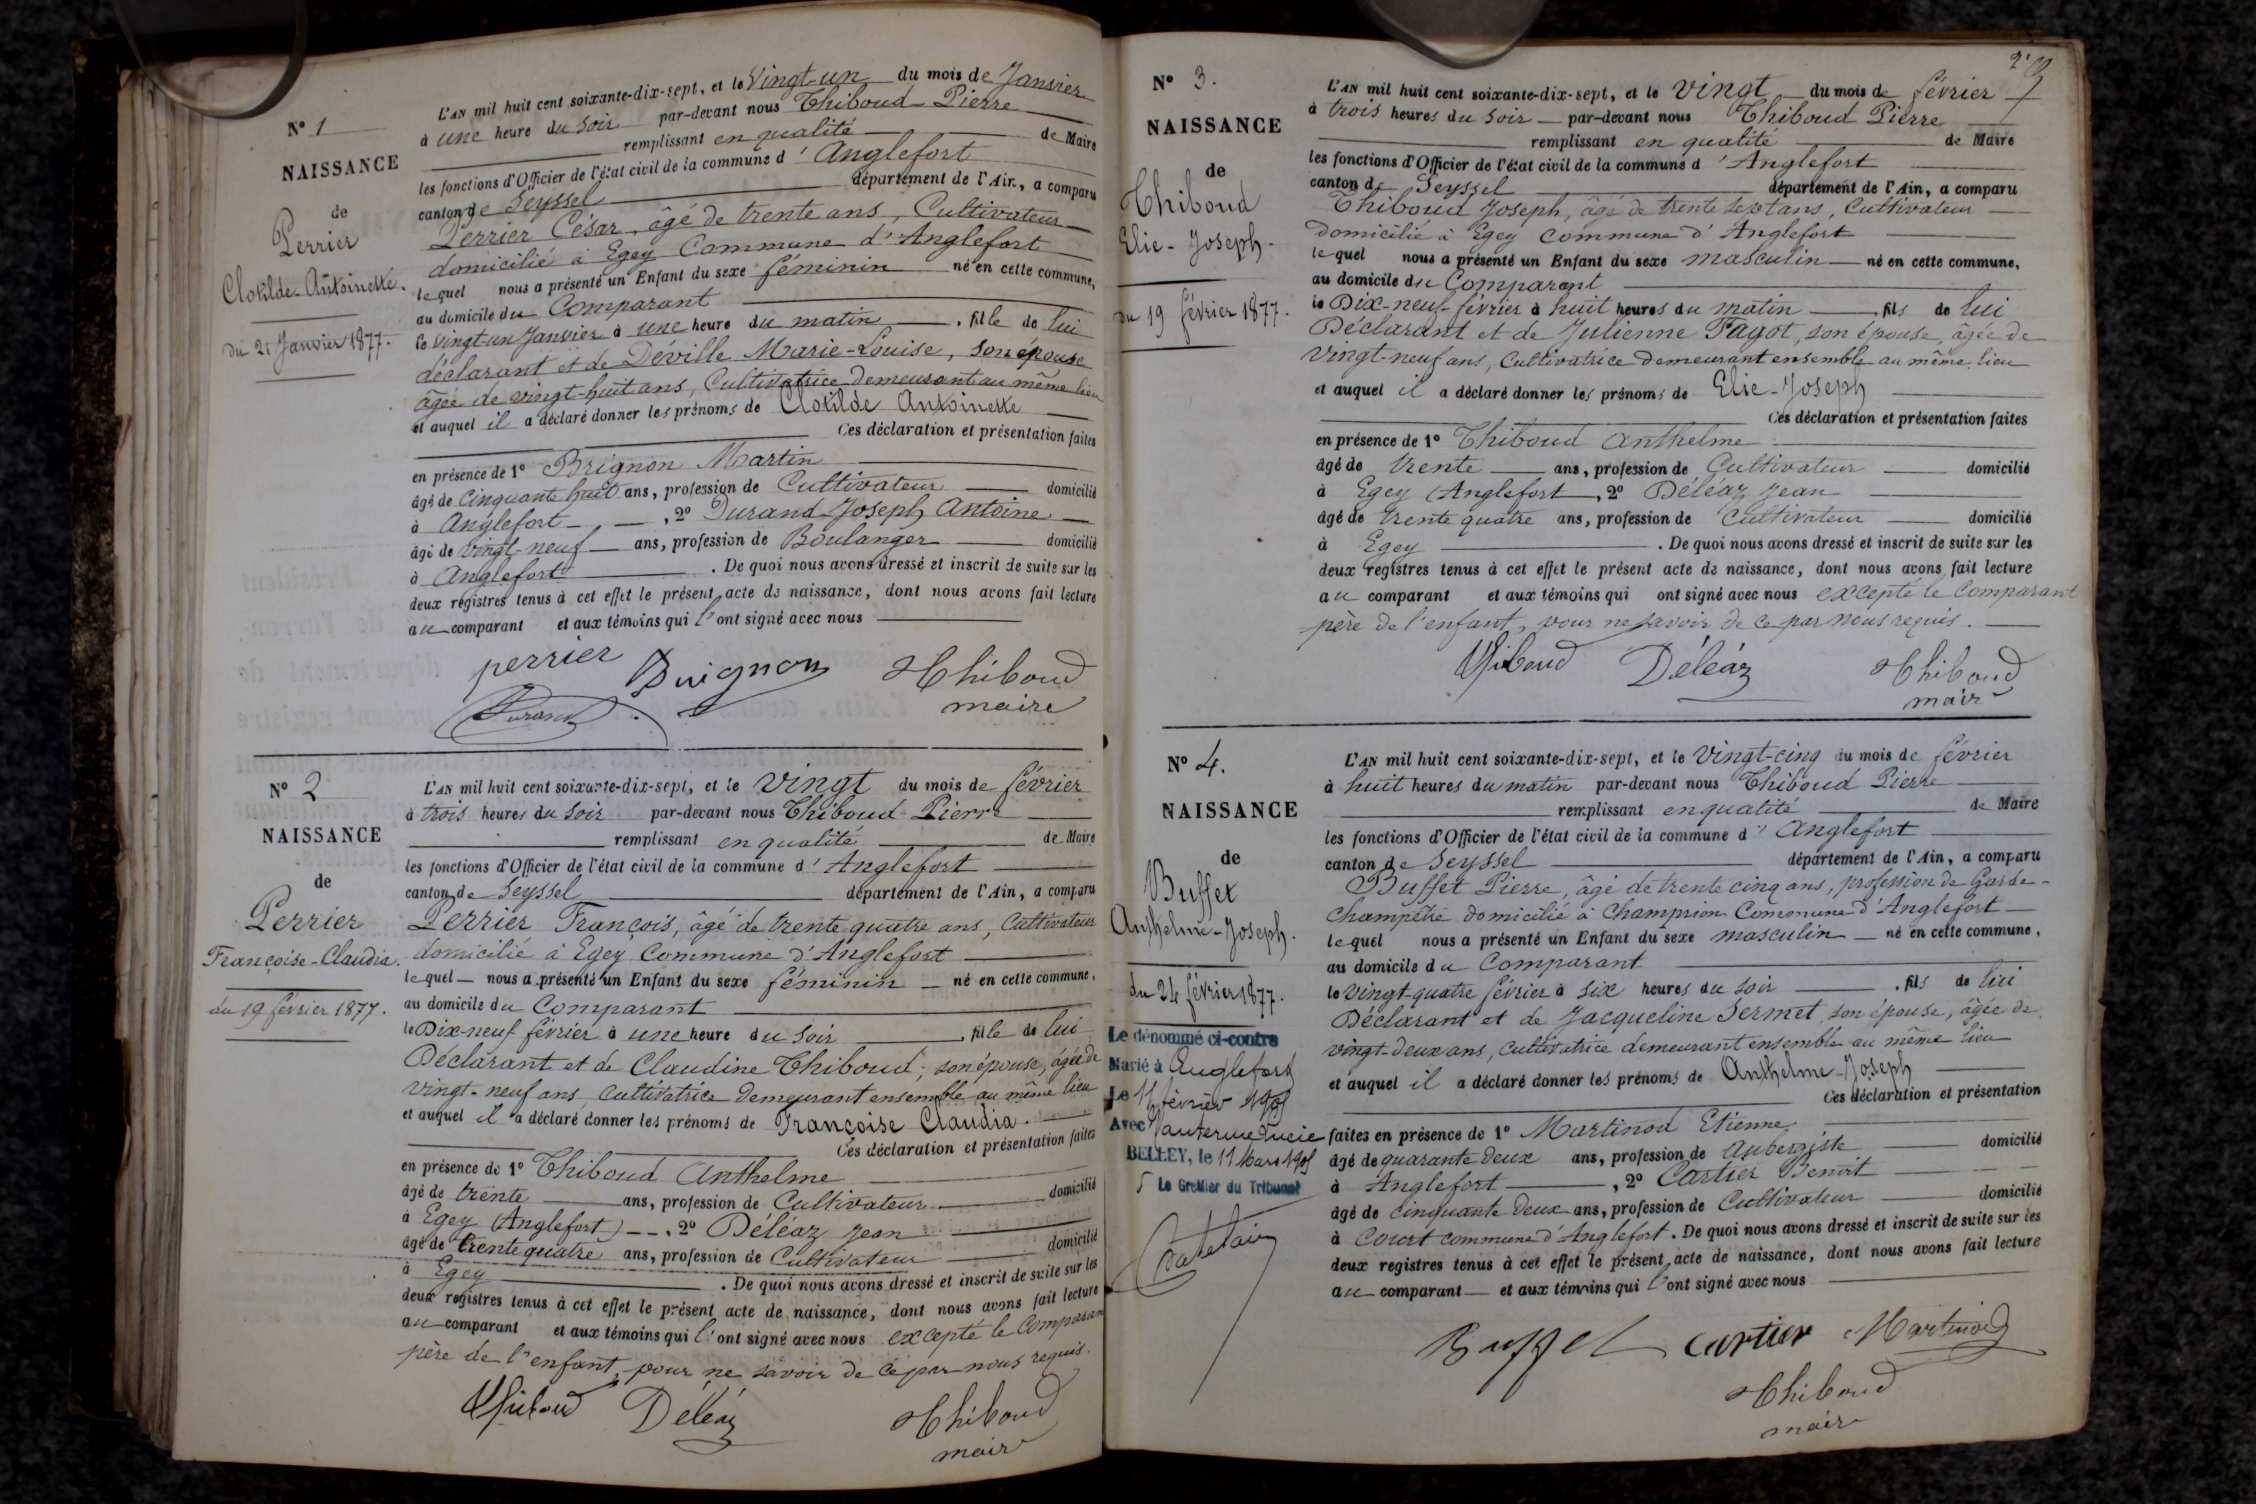 N° 1
NAISSANCE
de
Perrier
Clotilde-Antoinette.
du 21 Janvier 1877.
L'AN mil huit cent soixante-dix-sept, et le Vingt-un du mois de Janvier
à une heure du soir par-devant nous Thiboud Pierre
remplissant en qualité de Maire
les fonctions d'Officier de l'état civil de la commune d'Anglefort
canton de Seyssel département de l'Ain, a comparu
Perrier César, âgé de trente ans, Cultivateur
domicilié à Egey Commune d'Anglefort
lequel nous a présenté un Enfant du sexe féminin né en cette commune,
au domicile du Comparant
le vingt-un Janvier à une heure du matin, fille de lui
déclarant et de Déville Marie-Louise, son épouse
âgée de vingt-huit ans, Cultivatrice demeurant au même lieu
et auquel il a déclaré donner les prénoms de Clotilde Antoinette
Ces déclaration et présentation faites
en présence de 1° Brignon Martin
âgé de Cinquante huit ans, profession de Cultivateur domicilié
à Anglefort, 2° Durand Joseph Antoine
âgé de vingt-neuf ans, profession de Boulanger domicilié
à Anglefort. De quoi nous avons dressé et inscrit de suite sur les
deux registres tenus à cet effet le présent acte de naissance, dont nous avons fait lecture
au comparant et aux témoins qui l'ont signé avec nous
perrier Brignon Thiboud
Durand maire
N° 2
NAISSANCE
de
Perrier
Françoise-Claudia.
du 19 février 1877.
L'AN mil huit cent soixante-dix-sept, et le vingt du mois de février
à trois heures du soir par-devant nous Thiboud Pierre
remplissant en qualité de Maire
les fonctions d'Officier de l'état civil de la commune d'Anglefort
canton de Seyssel département de l'Ain, a comparu
Perrier François, âgé de trente quatre ans, Cultivateur
domicilié à Egey Commune d'Anglefort
lequel nous a présenté un Enfant du sexe féminin né en cette commune,
au domicile du Comparant
le Dix-neuf février à une heure du soir, fille de lui
Déclarant et de Claudine Thiboud, son épouse, âgée de
vingt-neuf ans, cultivatrice demeurant ensemble au même lieu
et auquel il a déclaré donner les prénoms de Françoise Claudia.
Ces déclaration et présentation faites
en présence de 1° Thiboud Anthelme
âgé de trente ans, profession de Cultivateur domicilié
à Egey (Anglefort), 2° Déléaz Jean
âgé de trente quatre ans, profession de Cultivateur domicilié
à Egey. De quoi nous avons dressé et inscrit de suite sur les
deux registres tenus à cet effet le présent acte de naissance, dont nous avons fait lecture
au comparant et aux témoins qui l'ont signé avec nous excepté le Comparant
père de l'enfant, pour ne savoir de ce par nous requis.
Thiboud Déléaz Thiboud
maire
N° 3.
NAISSANCE
de
Thiboud
Elie-Joseph.
du 19 février 1877.
L'AN mil huit cent soixante-dix-sept, et le vingt du mois de février
à trois heures du soir par-devant nous Thiboud Pierre
remplissant en qualité de Maire
les fonctions d'Officier de l'état civil de la commune d'Anglefort
canton de Seyssel département de l'Ain, a comparu
Thiboud Joseph, âgé de trente sept ans, Cultivateur
domicilié à Egey commune d'Anglefort
lequel nous a présenté un Enfant du sexe masculin né en cette commune,
au domicile du Comparant
le Dix-neuf février à huit heures du matin, fils de lui
Déclarant et de Julienne Fagot, son épouse, âgée de
vingt-neuf ans, Cultivatrice demeurant ensemble au même lieu
et auquel il a déclaré donner les prénoms de Elie-Joseph
Ces déclaration et présentation faites
en présence de 1° Thiboud Anthelme
âgé de trente ans, profession de Cultivateur domicilié
à Egey (Anglefort, 2° Déléaz Jean
âgé de trente quatre ans, profession de Cultivateur domicilié
à Egey. De quoi nous avons dressé et inscrit de suite sur les
deux registres tenus à cet effet le présent acte de naissance, dont nous avons fait lecture
au comparant et aux témoins qui ont signé avec nous excepté le Comparant
père de l'enfant, pour ne savoir de ce par nous requis.
Thiboud Déléaz Thiboud
maire
N° 4.
NAISSANCE
de
Buffet
Anthelme-Joseph.
du 24 février 1877.
Le dénommé ci-contre
Marié à Anglefort
Le 11 février 1905
Avec Lucie
BELLEY, le 11 Mars 1905
Le Greffier du Tribunal
L'AN mil huit cent soixante-dix-sept, et le Vingt-cinq du mois de février
à huit heures du matin par-devant nous Thiboud Pierre
remplissant en qualité de Maire
les fonctions d'Officier de l'état civil de la commune d'Anglefort
canton de Seyssel département de l'Ain, a comparu
Buffet Pierre, âgé de trente cinq ans, profession de Garde-
Champêtre domicilié à Champrion Commune d'Anglefort
lequel nous a présenté un Enfant du sexe masculin né en cette commune,
au domicile du Comparant
le vingt-quatre février à six heures du soir, fils de lui
Déclarant et de Jacqueline Sermet, son épouse, âgée de
vingt-deux ans, cultivatrice demeurant ensemble au même lieu
et auquel il a déclaré donner les prénoms de Anthelme-Joseph
Ces déclaration et présentation
faites en présence de 1° Martinod Etienne
âgé de quarante deux ans, profession de Aubergiste domicilié
à Anglefort, 2° Cartier Benoit
âgé de cinquante deux ans, profession de Cultivateur domicilié
à Court commune d'Anglefort. De quoi nous avons dressé et inscrit de suite sur les
deux registres tenus à cet effet le présent acte de naissance, dont nous avons fait lecture
au comparant et aux témoins qui l'ont signé avec nous
Buffet Cartier Martinod
Thiboud
maire